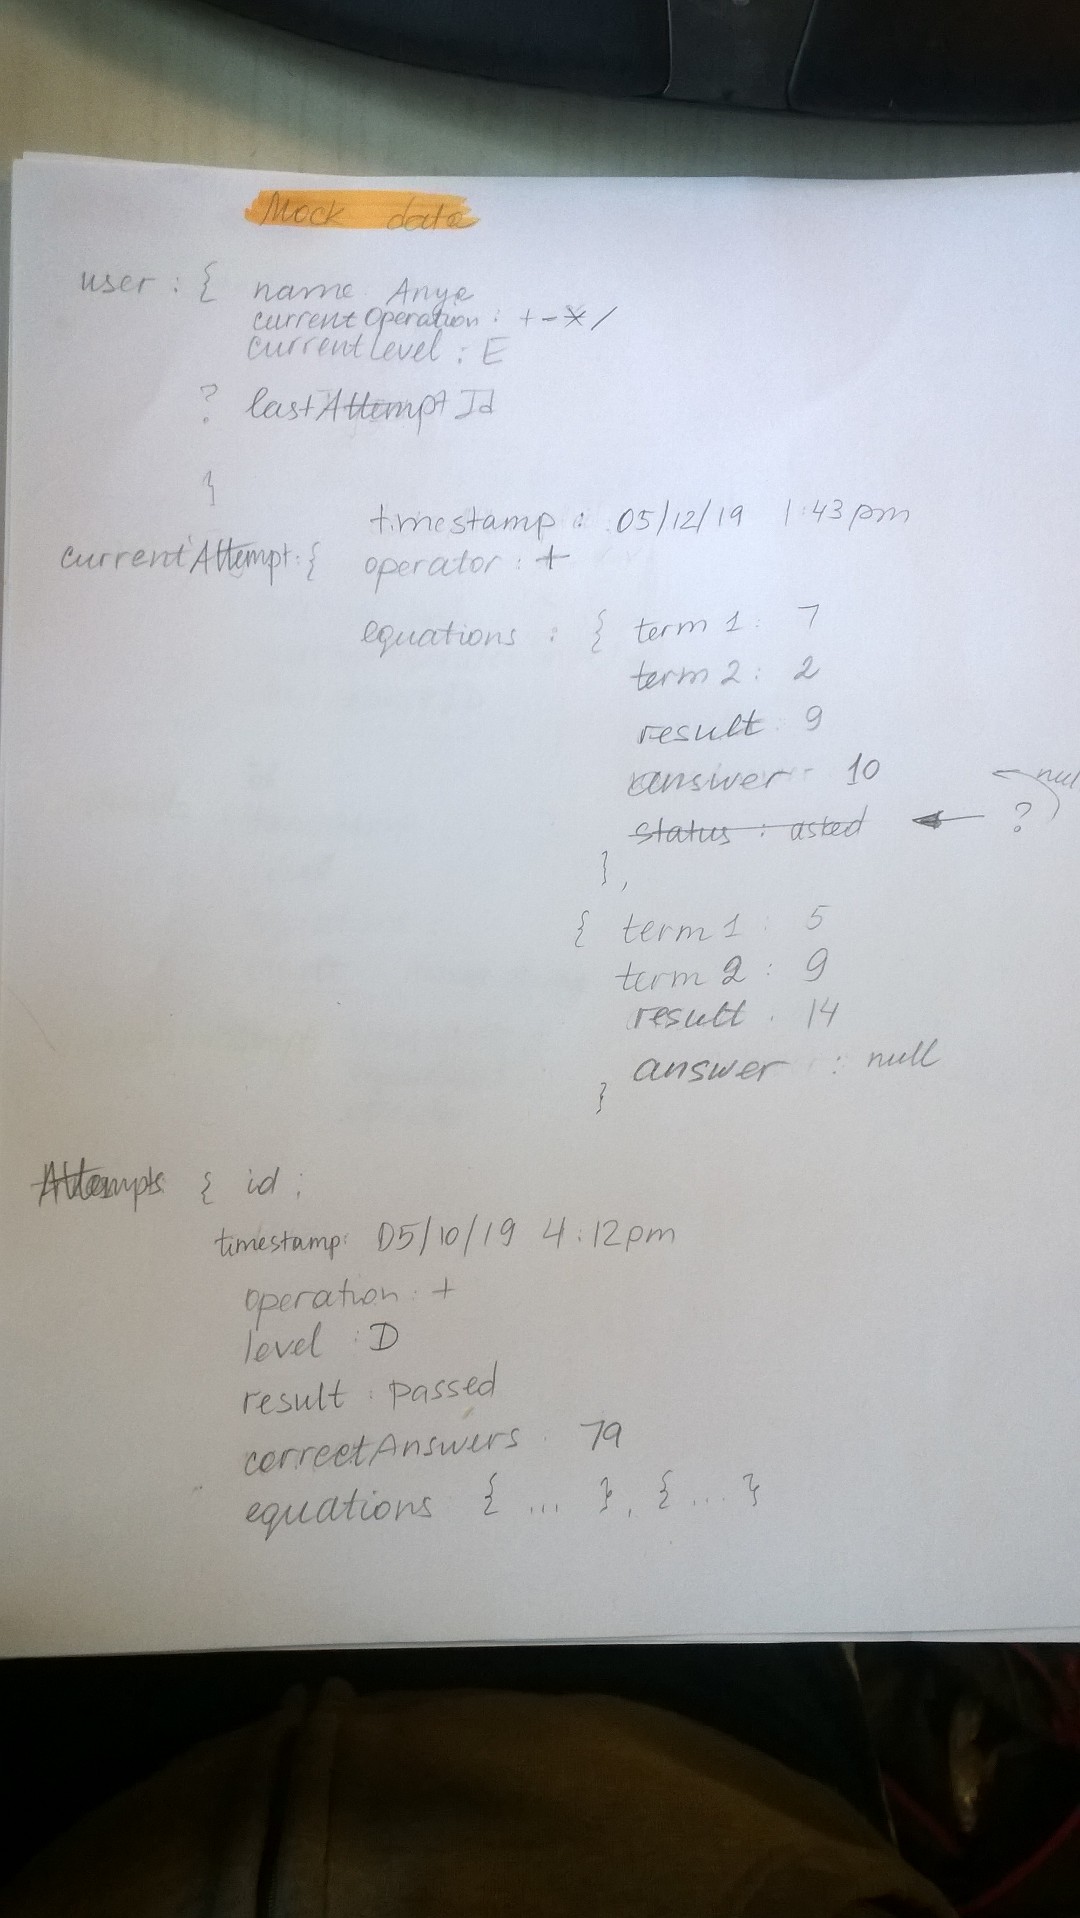 Mock data
user : { name Anye
currentOperation : + - * /
currentLevel : E
? lastAttemptId
}
timestamp : 05/12/19 1:43 pm
currentAttempt : { operator : +
equations : { term 1 : 7
term 2 : 2
result 9
answer 10
status : asked ?
},
{ term 1 : 5
term 2 : 9
result . 14
answer : null
}
Attempts { id :
timestamp: 05/10/19 4:12pm
operation : +
level : D
result : passed
correctAnswers . 79
equations { ... } , { ... }